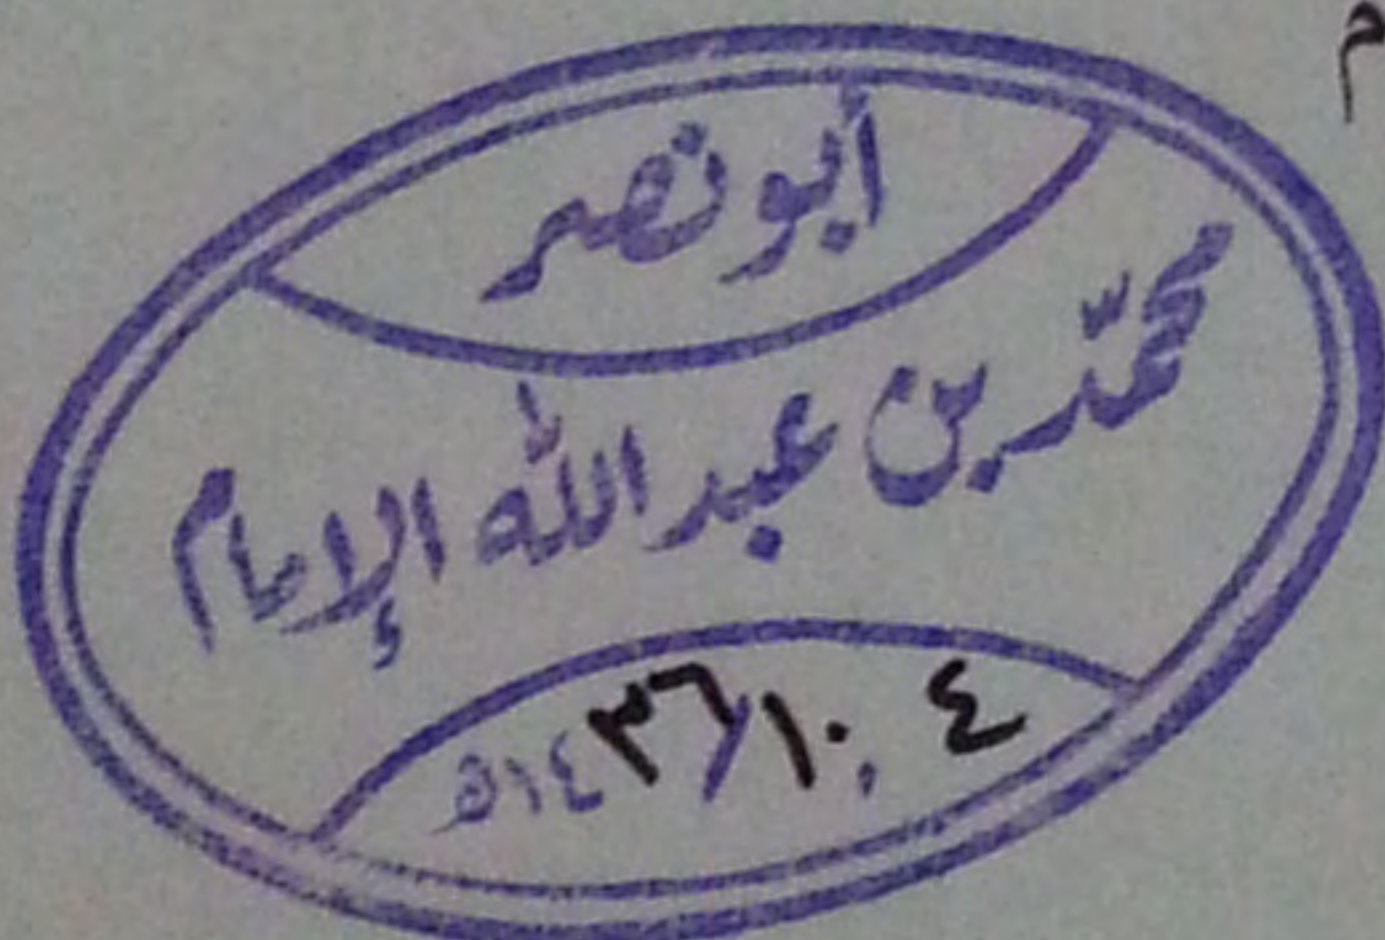 أبو نصر
محمّد بن عبد اللّٰه الإمام
٤ / ١٠ / ١٤٣٦هـ